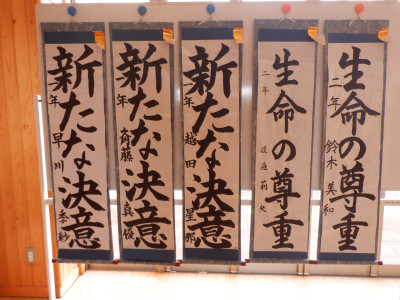 新たな決意
年 早川 季紗
新たな決意
年 斉藤 真優
新たな決意
年 越田 星那
生命の尊重
二年
生命の尊重
二年 鈴木 美和